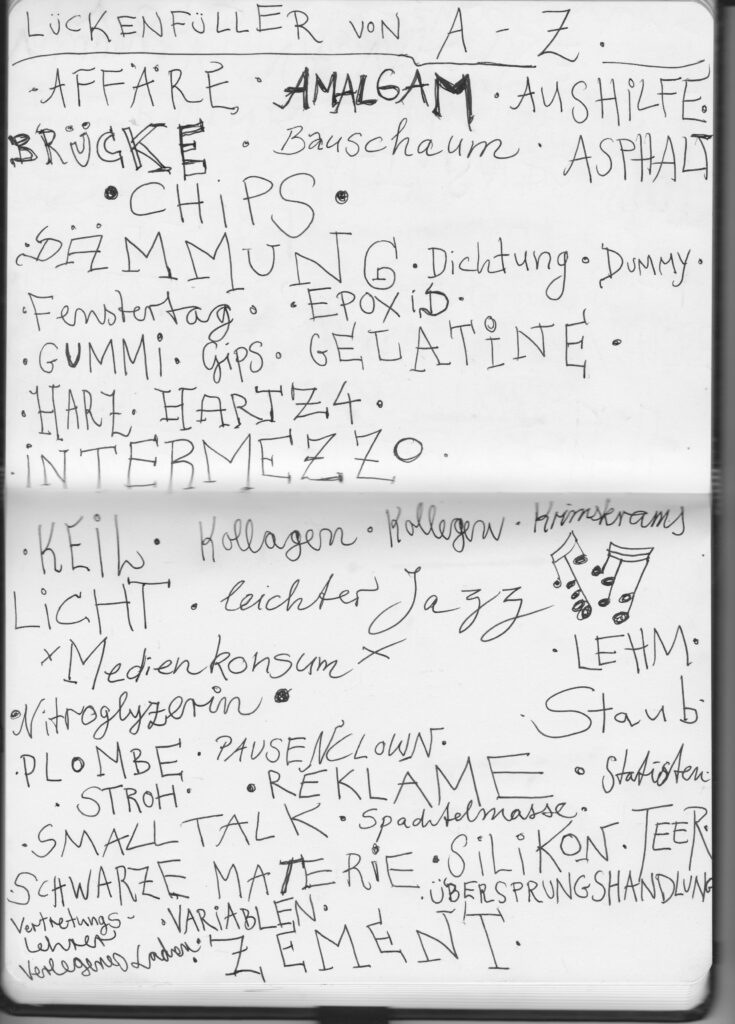 LÜCKENFÜLLER VON A - Z.
·AFFÄRE · AMALGAM · AUSHILFE·
BRÜCKE · Bauschaum · ASPHALT
• CHIPS •
·DÄMMUNG · Dichtung · DUMMY ·
·Fenstertag · · EPOXID ·
·GUMMI · Gips · GELATINE ·
·HARZ · HARTZ4 ·
·INTERMEZZO ·
·KEIL · Kollagen · Kollegen · Krimskrams
LICHT · leichter Jazz
x Medienkonsum x · LEHM ·
·Nitroglyzerin • Staub ·
·PLOMBE · PAUSENCLOWN ·
· STROH · · REKLAME · Statisten
·SMALL TALK · Spachtelmasse ·
·SCHWARZE MATERIE · SILIKON · TEER ·
·ÜBERSPRUNGSHANDLUNG
Vertretungs- · VARIABLEN ·
lehrer
Verlegenes Lachen · ZEMENT ·